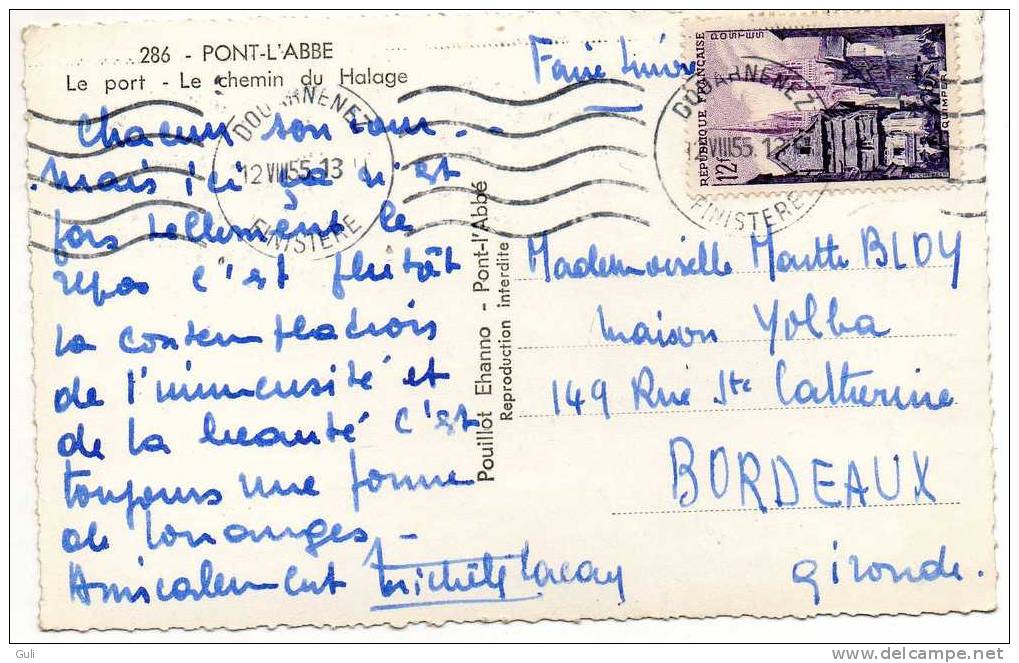 286 - PONT-L'ABBE
Le port - Le chemin du Halage
Faire suivre
REPUBLIQUE FRANÇAISE
POSTES
12f
QUIMPER
DOUARNENEZ
12 VIII 55. 13
FINISTERE
DOUARNENEZ
12 VIII 55. 13
FINISTERE
Chacun son tour...
mais ici ça n'est
pas tellement le
repos c'est plutôt
la contemplation
de l'immensité et
de la beauté c'est
toujours une forme
de louanges -
Amicalement Michèle
Pouillot Ehanno - Pont-l'Abbé
Reproduction interdite
Mademoiselle BLOY
maison Yolba
149 Rue Ste Catherine
BORDEAUX
Gironde.
Guli
www.delcampe.net